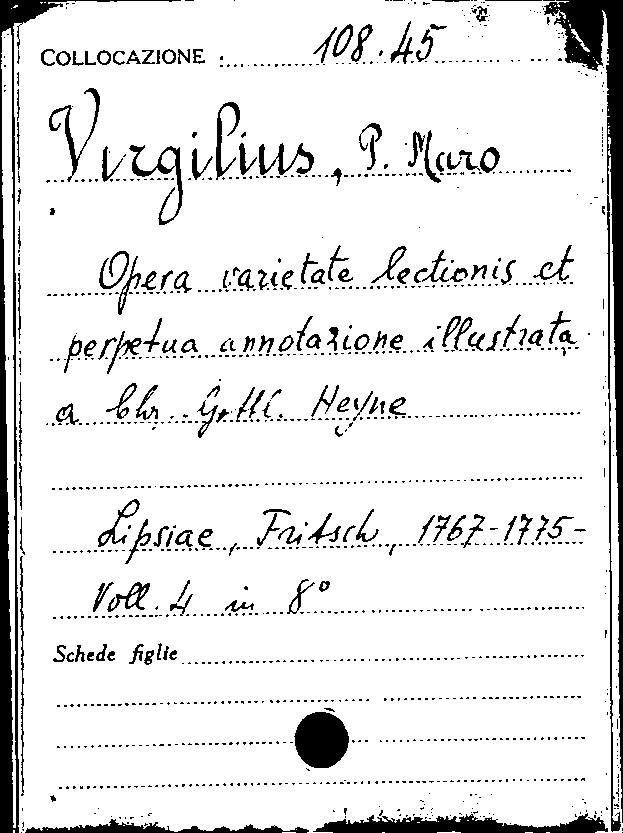 COLLOCAZIONE : 108.45
Virgilius, P. Maro
Opera varietate lectionis et
perpetua annotazione illustrata
a Chr. Gottl. Heyne
Lipsiae, Fritsch, 1767-1775-
Voll. 4 in 8°
Schede figlie